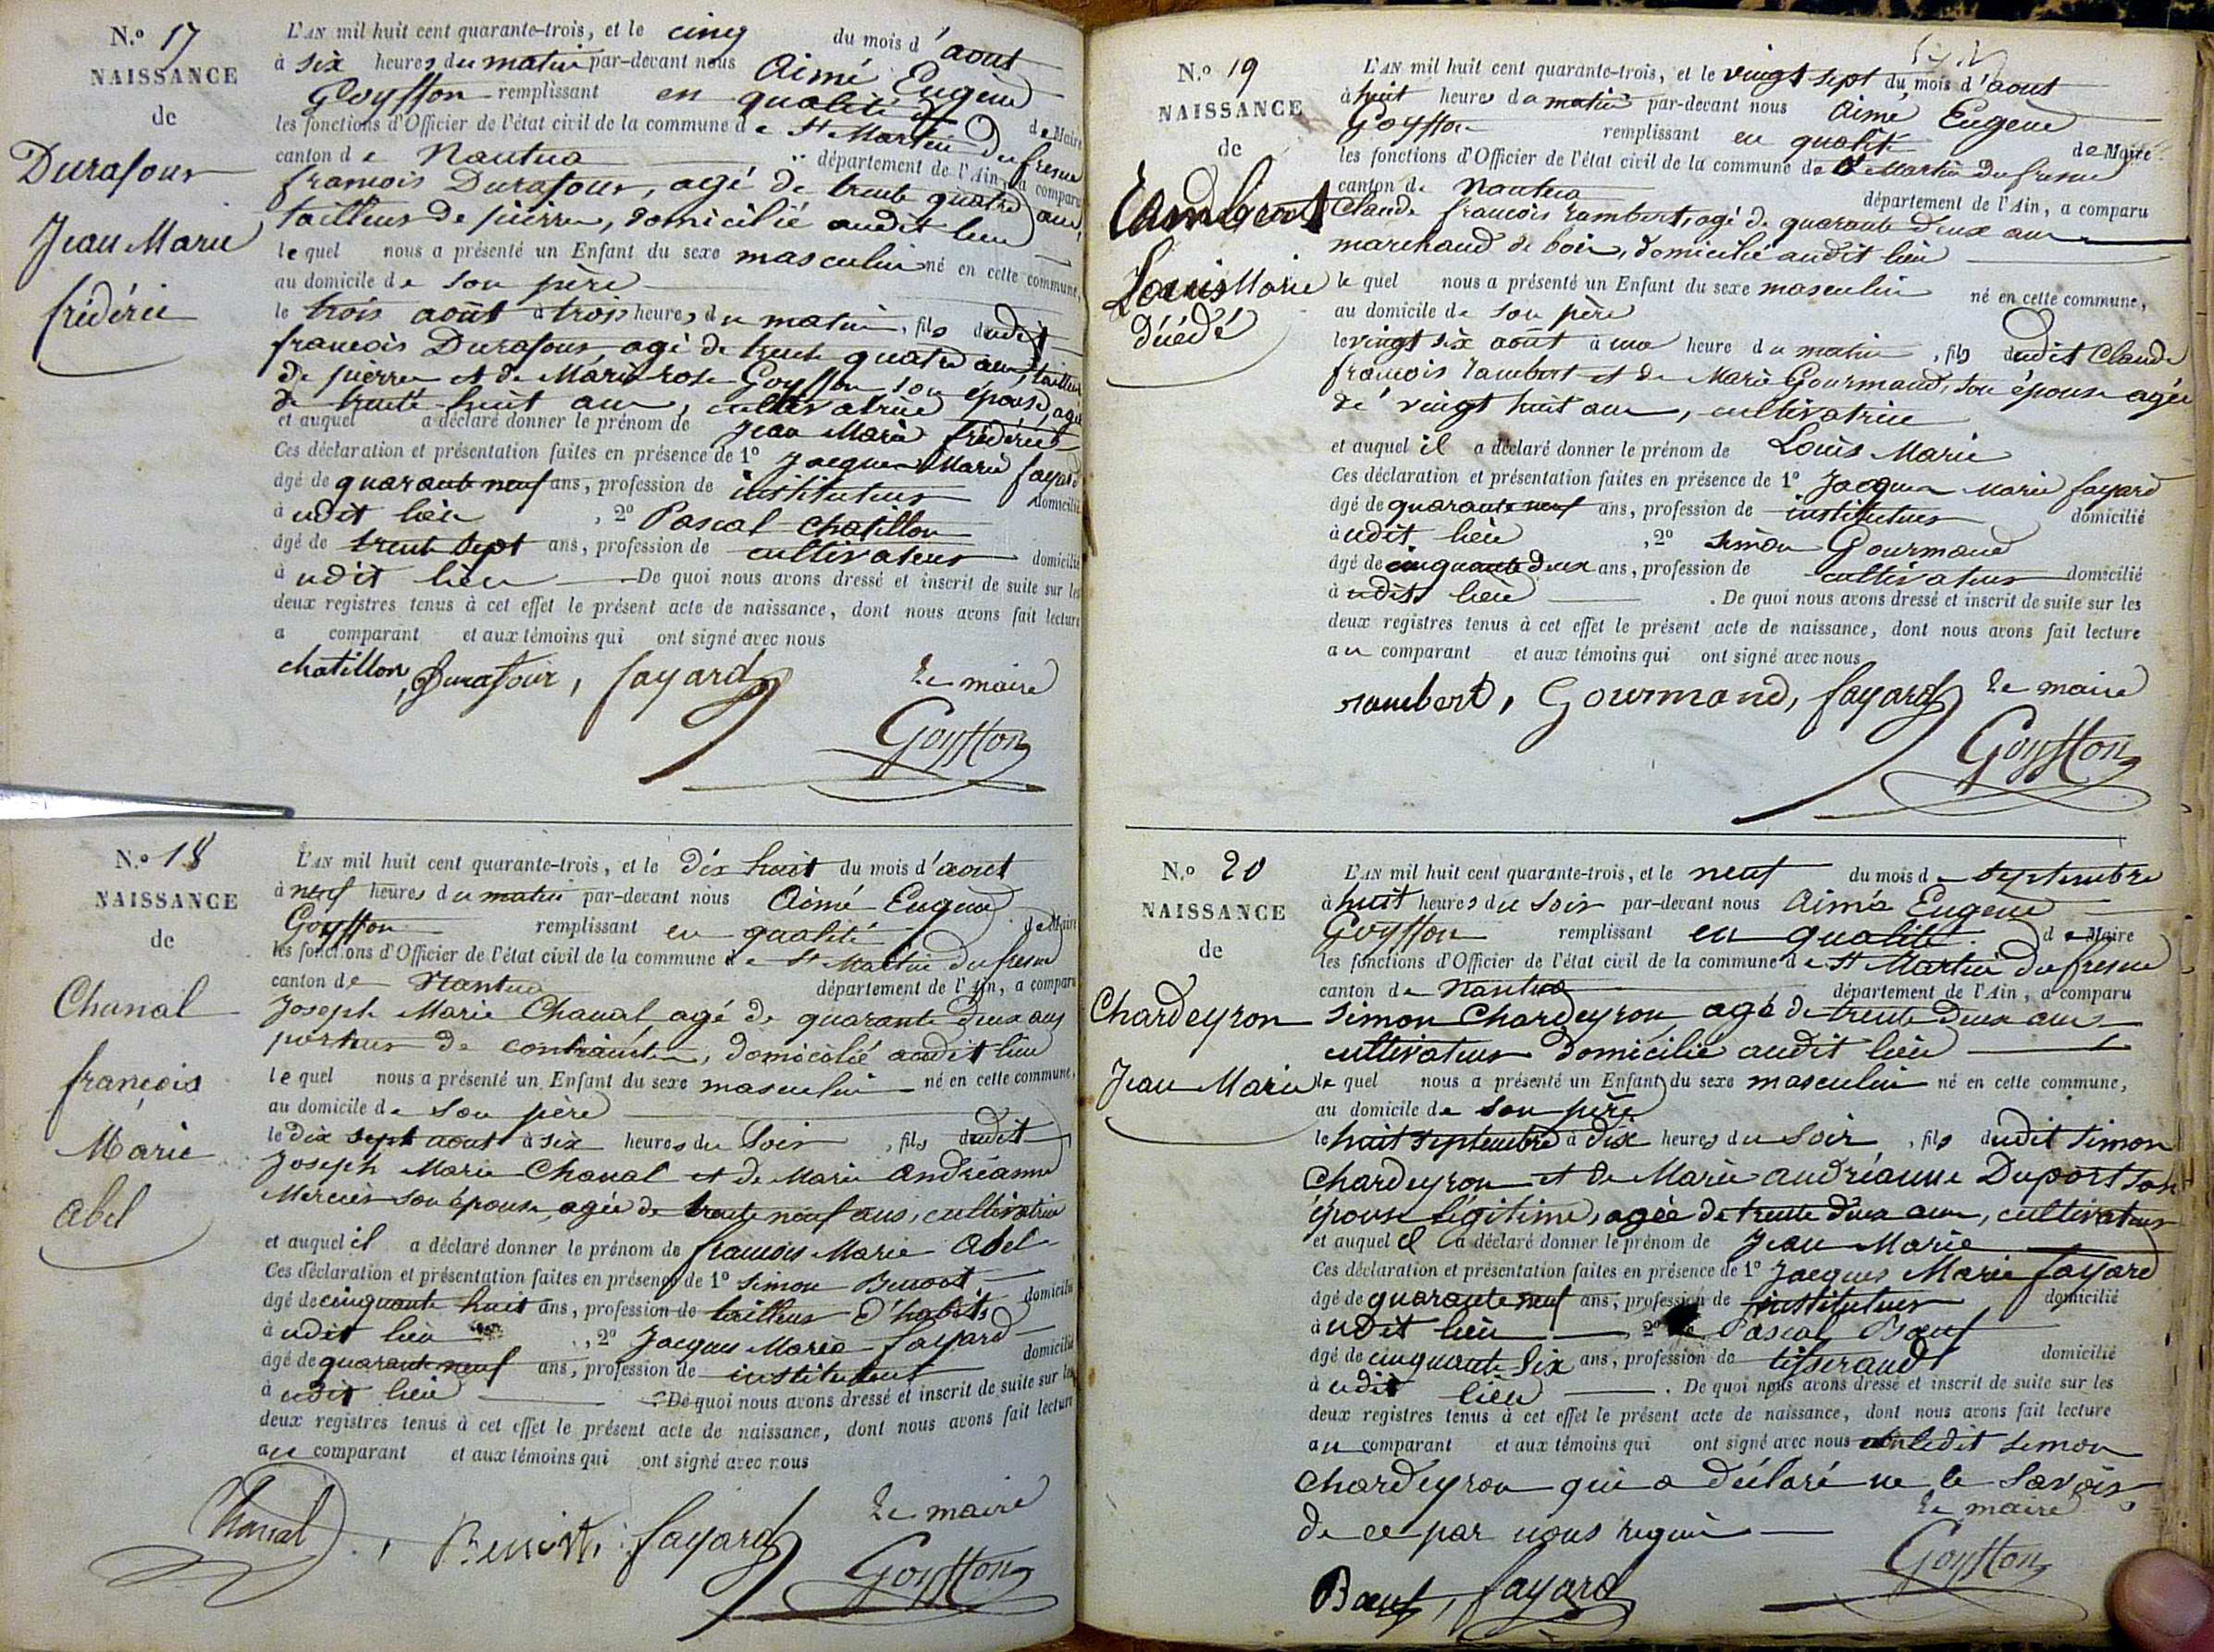 N.o 17
NAISSANCE
de
Durafour
Jean Marie
frédéric
L'AN mil huit cent quarante-trois, et le cinq du mois d'aout
à six heures du matin par-devant nous Aimé Eugene
Goyffon remplissant en qualité de Maire
les fonctions d'Officier de l'état civil de la commune de St Martin Dufresne
canton de Nantua département de l'Ain, a comparu
francois Durafour, agé de trente quatre ans,
tailleur de pierre, domicilié audit lieu
lequel nous a présenté un Enfant du sexe masculin né en cette commune,
au domicile de son père
le trois août à trois heures du matin, fils dudit
francois Durafour agé de trente quatre ans, tailleur
de pierre et de Marie rose Goyffon son épouse, agée
de trente huit ans, cultivatrice
et auquel a déclaré donner le prénom de Jean Marie frédéric
Ces déclaration et présentation faites en présence de 1o Jacques Marie fayard
âgé de quarante neuf ans, profession de instituteur domicilié
audit lieu, 2o Pascal Chatillon
âgé de trente sept ans, profession de cultivateur domicilié
à udit lieu De quoi nous avons dressé et inscrit de suite sur les
deux registres tenus à cet effet le présent acte de naissance, dont nous avons fait lecture
a comparant et aux témoins qui ont signé avec nous
chatillon, Durafour, fayard Le maire
Goyffon
N.o 18
NAISSANCE
de
Chanal
françois
Marie
Abel
L'AN mil huit cent quarante-trois, et le dix huit du mois d'aout
à neuf heures du matin par-devant nous Aimé Eugene
Goyffon remplissant en qualité de Maire
les fonctions d'Officier de l'état civil de la commune de St Martin Dufresne
canton de Nantua département de l'Ain, a comparu
Joseph Marie Chanal, agé de quarante deux ans
porteur de contraintes, domicilié audit lieu
lequel nous a présenté un Enfant du sexe masculin né en cette commune,
au domicile de son père
le dix sept aout à six heures du soir, fils dudit
Joseph Marie Chanal et de Marie Andréanne
Mercier son épouse, agée de trente neuf ans, cultivatrice
et auquel il a déclaré donner le prénom de francois Marie Abel
Ces déclaration et présentation faites en présence de 1o Simon Benoit
âgé de cinquante huit ans, profession de tailleur d'habits domicilié
à udit lieu, 2o Jacques Marie fayard
âgé de quarante neuf ans, profession de instituteur domicilié
à udit lieu De quoi nous avons dressé et inscrit de suite sur les
deux registres tenus à cet effet le présent acte de naissance, dont nous avons fait lecture
au comparant et aux témoins qui ont signé avec nous
Chanal, Benoit, fayard Le maire
Goyffon
N.o 19
NAISSANCE
de
Rambert
Louis Marie
Décédé
L'AN mil huit cent quarante-trois, et le vingt sept du mois d'aout
à huit heures du matin par-devant nous Aimé Eugene
Goyffon remplissant en qualité de Maire
les fonctions d'Officier de l'état civil de la commune de St Martin Dufresne
canton de Nantua département de l'Ain, a comparu
Claude francois rambert, agé de quarante deux ans
marchand de bois, domicilié audit lieu
lequel nous a présenté un Enfant du sexe masculin né en cette commune,
au domicile de son père
le vingt six août à une heure du matin, fils dudit Claude
francois rambert et de Marie Gourmand, son épouse agée
de vingt huit ans, cultivatrice
et auquel il a déclaré donner le prénom de Louis Marie
Ces déclaration et présentation faites en présence de 1o Jacques Marie fayard
âgé de quarante neuf ans, profession de instituteur domicilié
à udit lieu, 2o Simon Gourmand
âgé de cinquante deux ans, profession de cultivateur domicilié
à udit lieu. De quoi nous avons dressé et inscrit de suite sur les
deux registres tenus à cet effet le présent acte de naissance, dont nous avons fait lecture
au comparant et aux témoins qui ont signé avec nous
rambert, Gourmand, fayard Le maire
Goyffon
N.o 20
NAISSANCE
de
Chardeyron
Jean Marie
L'AN mil huit cent quarante-trois, et le neuf du mois de septembre
à huit heures du soir par-devant nous Aimé Eugene
Goyffon remplissant en qualité de Maire
les fonctions d'Officier de l'état civil de la commune de St Martin Dufresne
canton de Nantua département de l'Ain, a comparu
Simon Chardeyron, agé de trente deux ans
cultivateur domicilié audit lieu
lequel nous a présenté un Enfant du sexe masculin né en cette commune,
au domicile de son père
le huit septembre à dix heures du soir, fils dudit Simon
Chardeyron et de Marie andréanne Duport son
épouse légitime, agée de trente deux ans, cultivateur
et auquel il a déclaré donner le prénom de Jean Marie
Ces déclaration et présentation faites en présence de 1o Jacques Marie fayard
âgé de quarante neuf ans, profession de instituteur domicilié
à udit lieu 2o Pascal Bœuf
âgé de cinquante six ans, profession de tisserand domicilié
à udit lieu. De quoi nous avons dressé et inscrit de suite sur les
deux registres tenus à cet effet le présent acte de naissance, dont nous avons fait lecture
au comparant et aux témoins qui ont signé avec nous ledit Simon
Chardeyron qui a déclaré ne le savoir
de ce par nous requis Le maire
Bœuf, fayard Goyffon